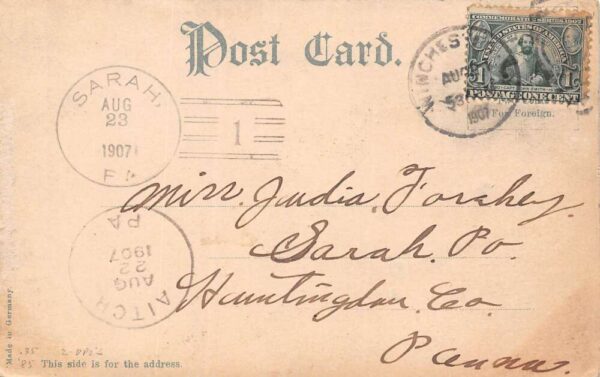 Post Card.
COMMEMORATIVE SERIES 1907
UNITED STATES OF AMERICA
1 1
POSTAGE ONE CENT
For Foreign.
WINCHES
AUG
530
1907
SARAH,
AUG
23
1907
PA
1
AITCH
AUG
22
1907
PA
Miss. Judia. Forshey.
Sarah. Po.
Huntingdon. Co.
Penna.
Made in Germany.
.85
This side is for the address.